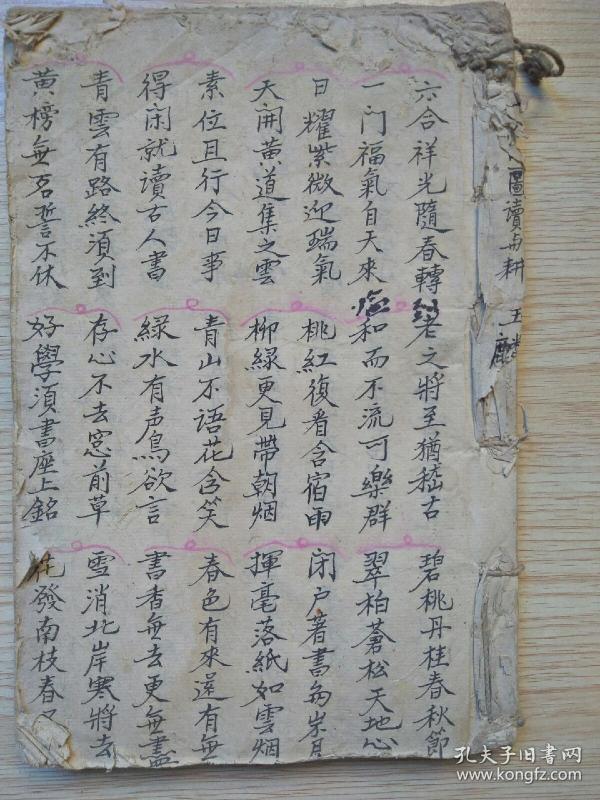 圖讀与耕
六合祥光隨春轉
一门福氣自天來
日耀紫微迎瑞氣
天開黄道集之雲
素位且行今日事
得闲就讀古人書
青雲有路終須到
黄榜無名誓不休
老之將至猶嵇古
和而不流可樂群
桃紅復看含宿雨
柳綠更見帶朝烟
青山不语花含笑
綠水有声鳥欲言
存心不去窓前草
好學須書座上銘
碧桃丹桂春秋節
翠柏蒼松天地心
闭户著書多岁月
揮毫落紙如雲烟
春色有來還有無
書香無去更無盡
雪消北岸寒將去
花發南枝春
孔夫子旧書网
www.kongfz.com